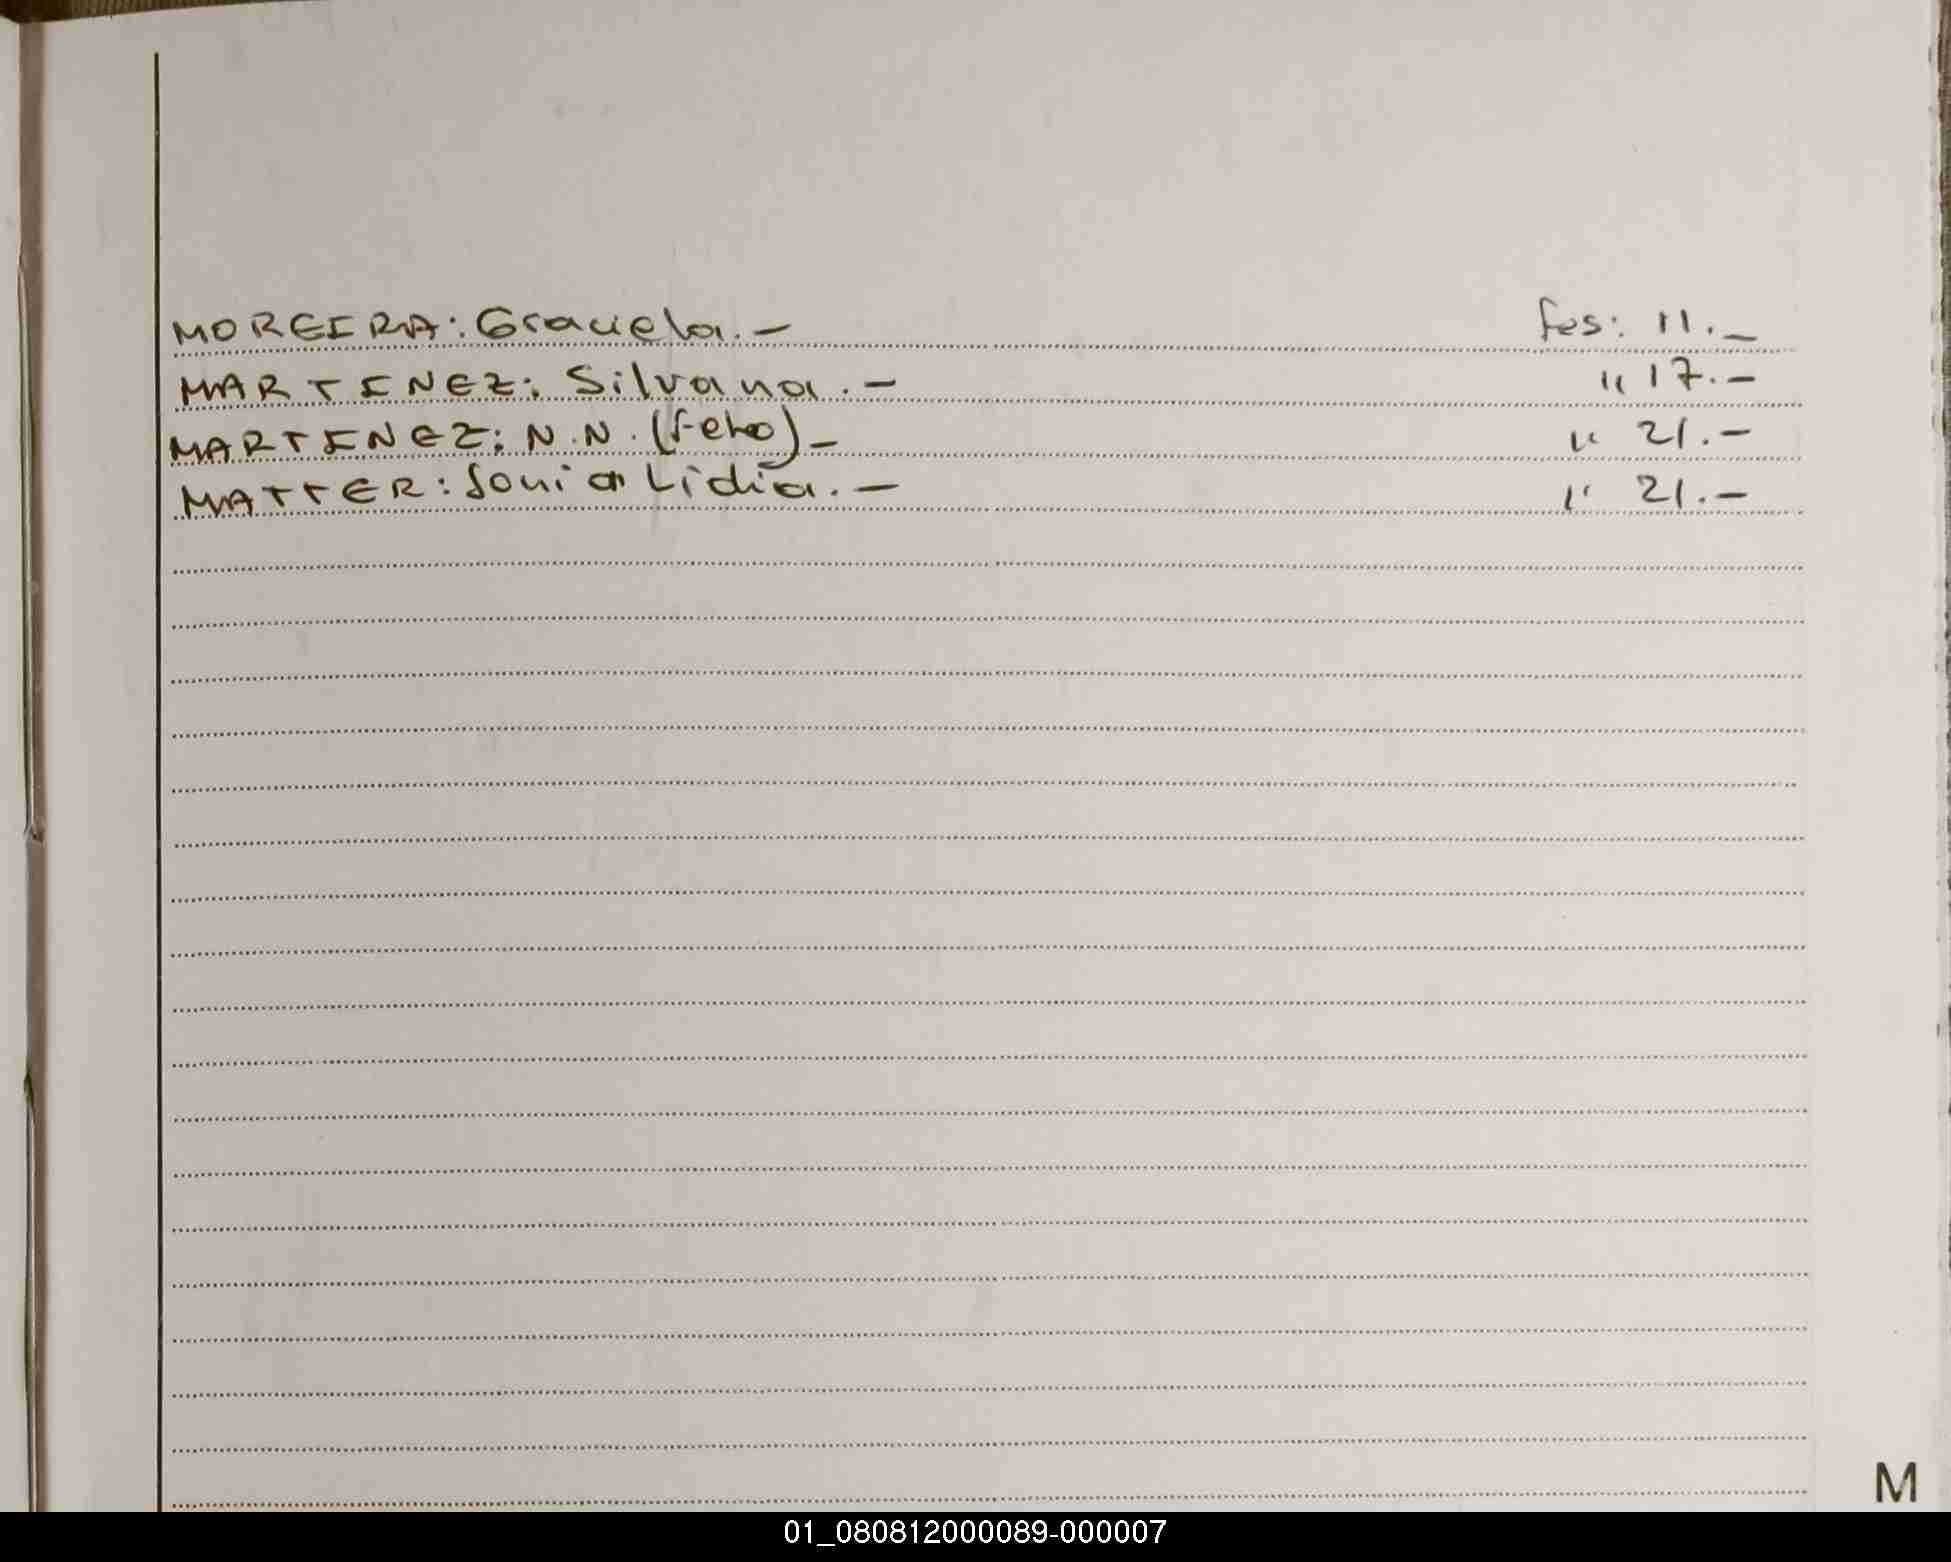 MOREIRA: Graciela.— fes: 11.—
MARTINEZ: Silvana.— " 17.—
MARTINEZ: N.N. (feto)— " 21.—
MATTER: Sonia Lidia.— " 21.—
M
01_080812000089-000007